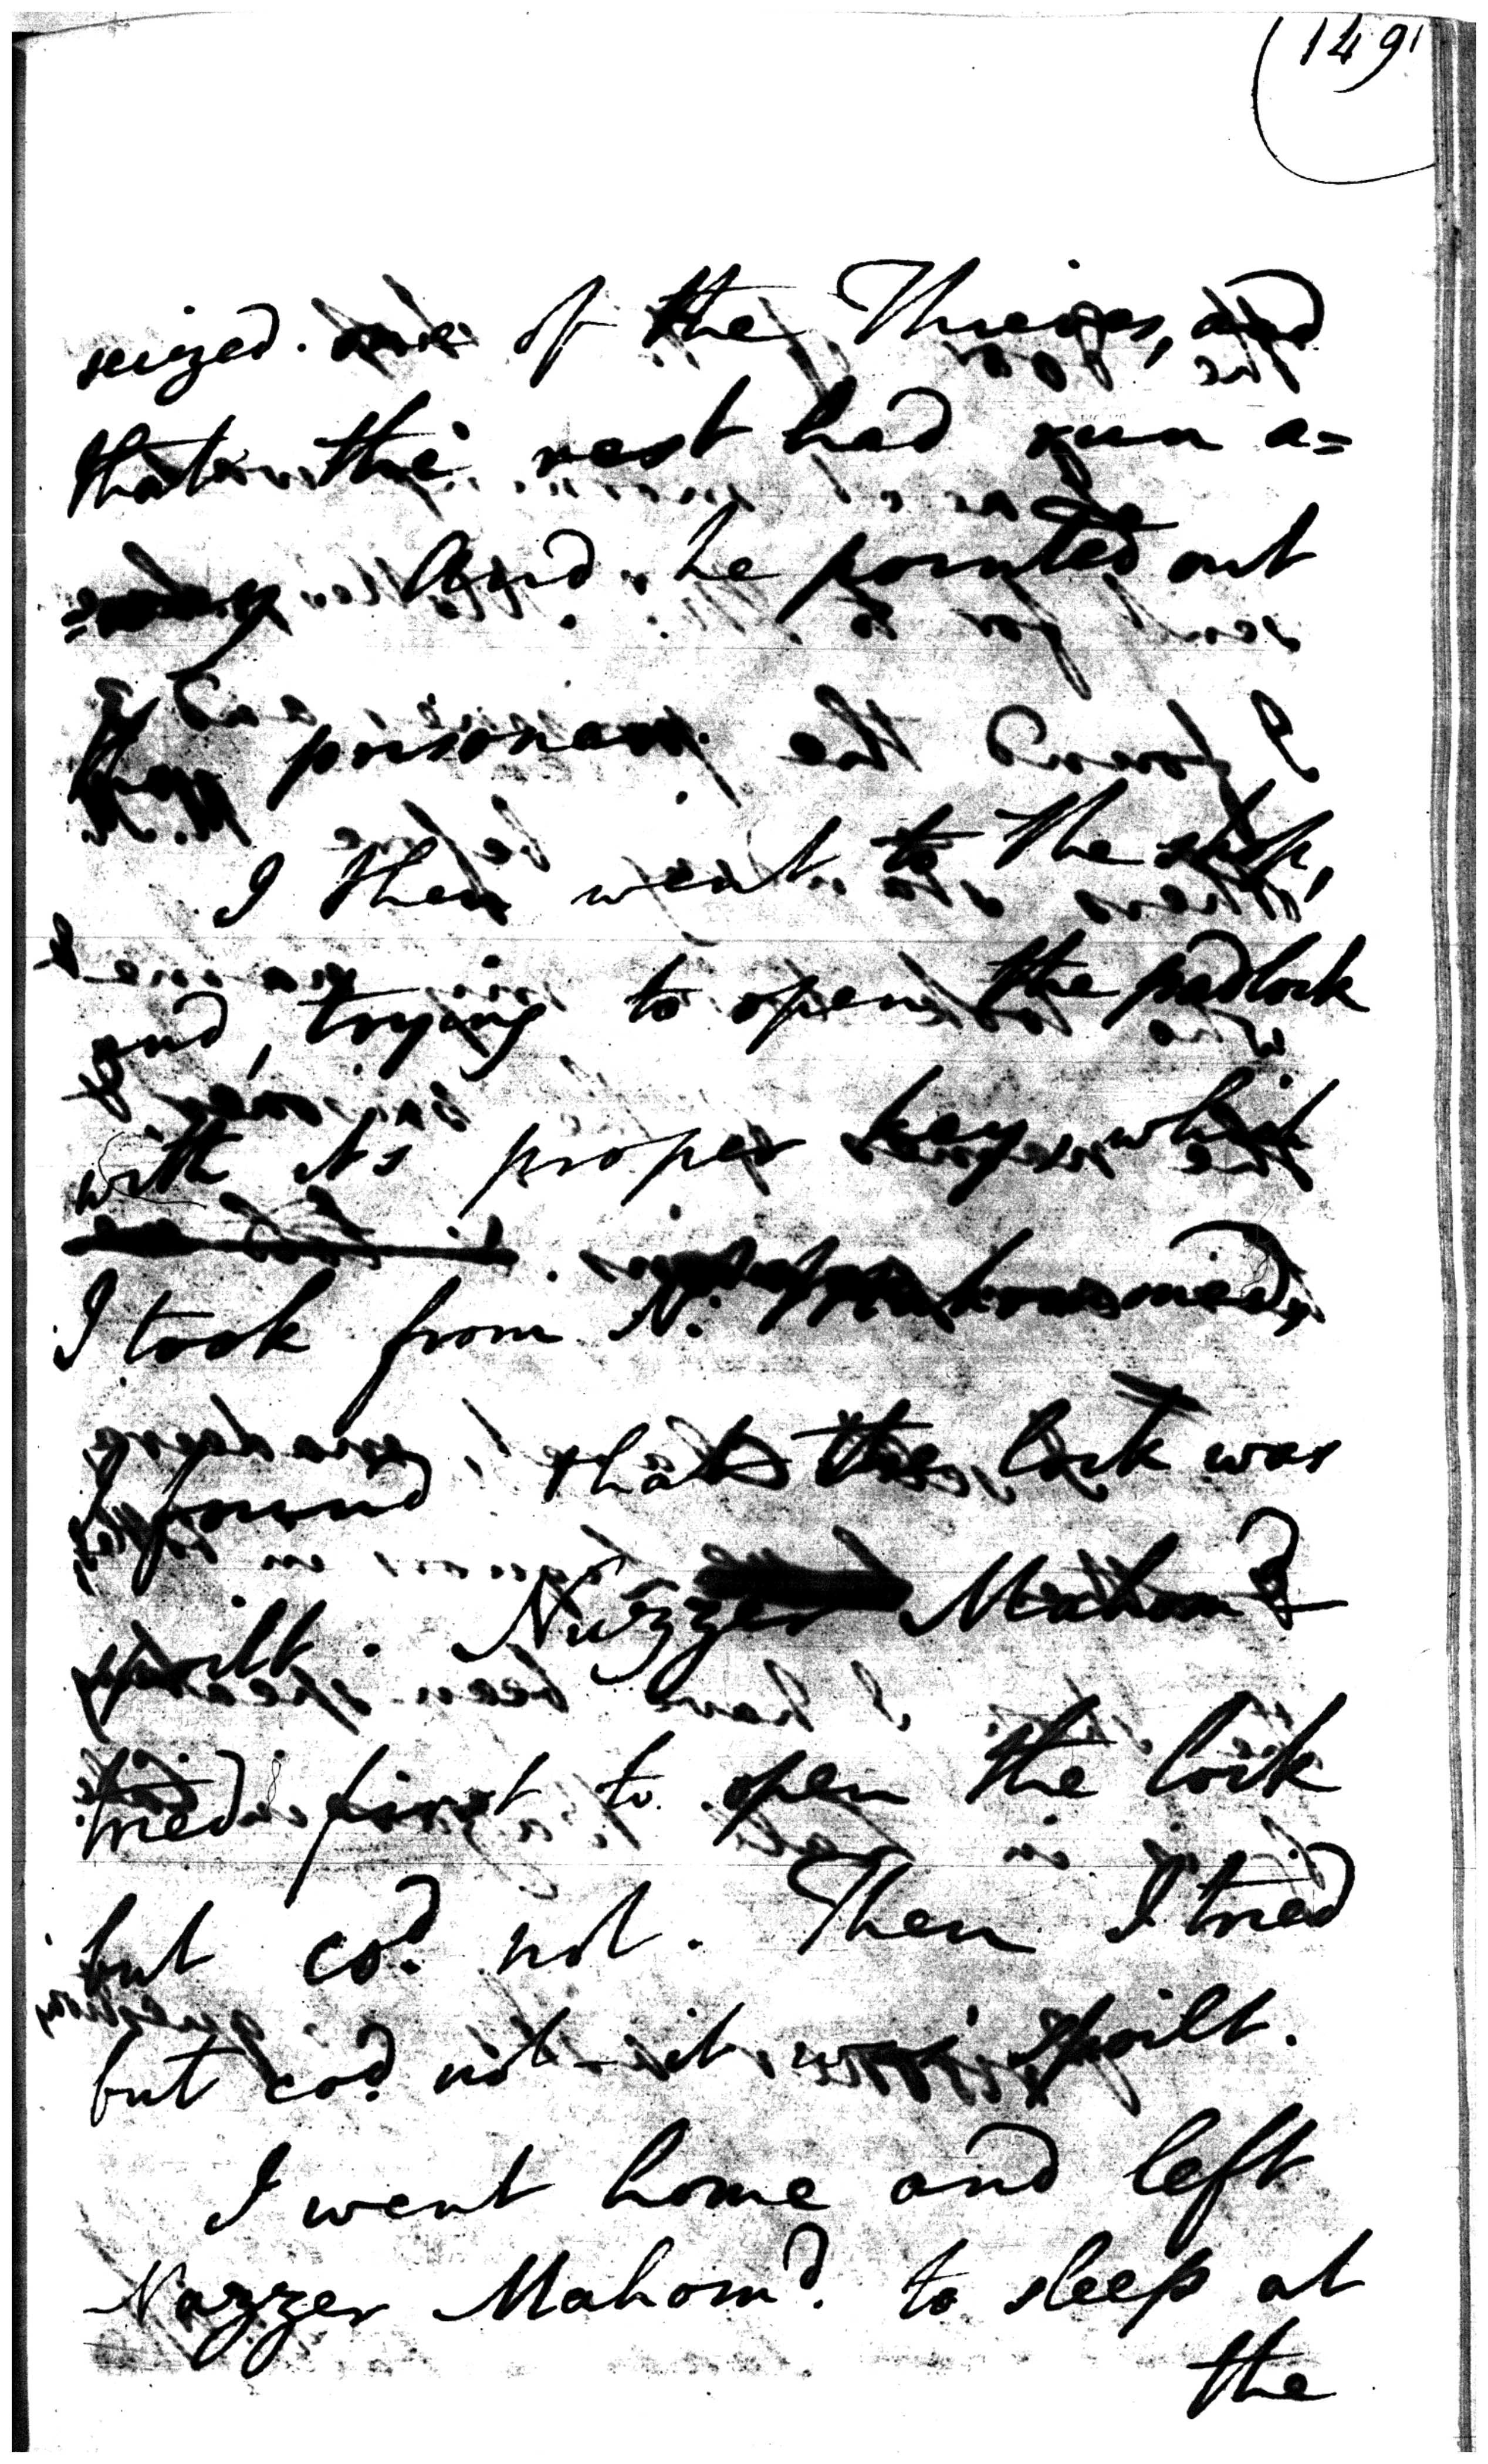 149
seized one of the Thieves, and
that the rest had run a=
=way. And he pointed out
the prisoner.
I then went to the shop,
and, trying to open the padlock
with its proper key which
I took from N.
I found that the lock was
spoilt. Nuzzer Mahom.d
tried first to open the lock
but cod. not. Then I tried
but cod. not - it was spoilt.
I went home and left
Nazzer Mahomd. to sleep at
the